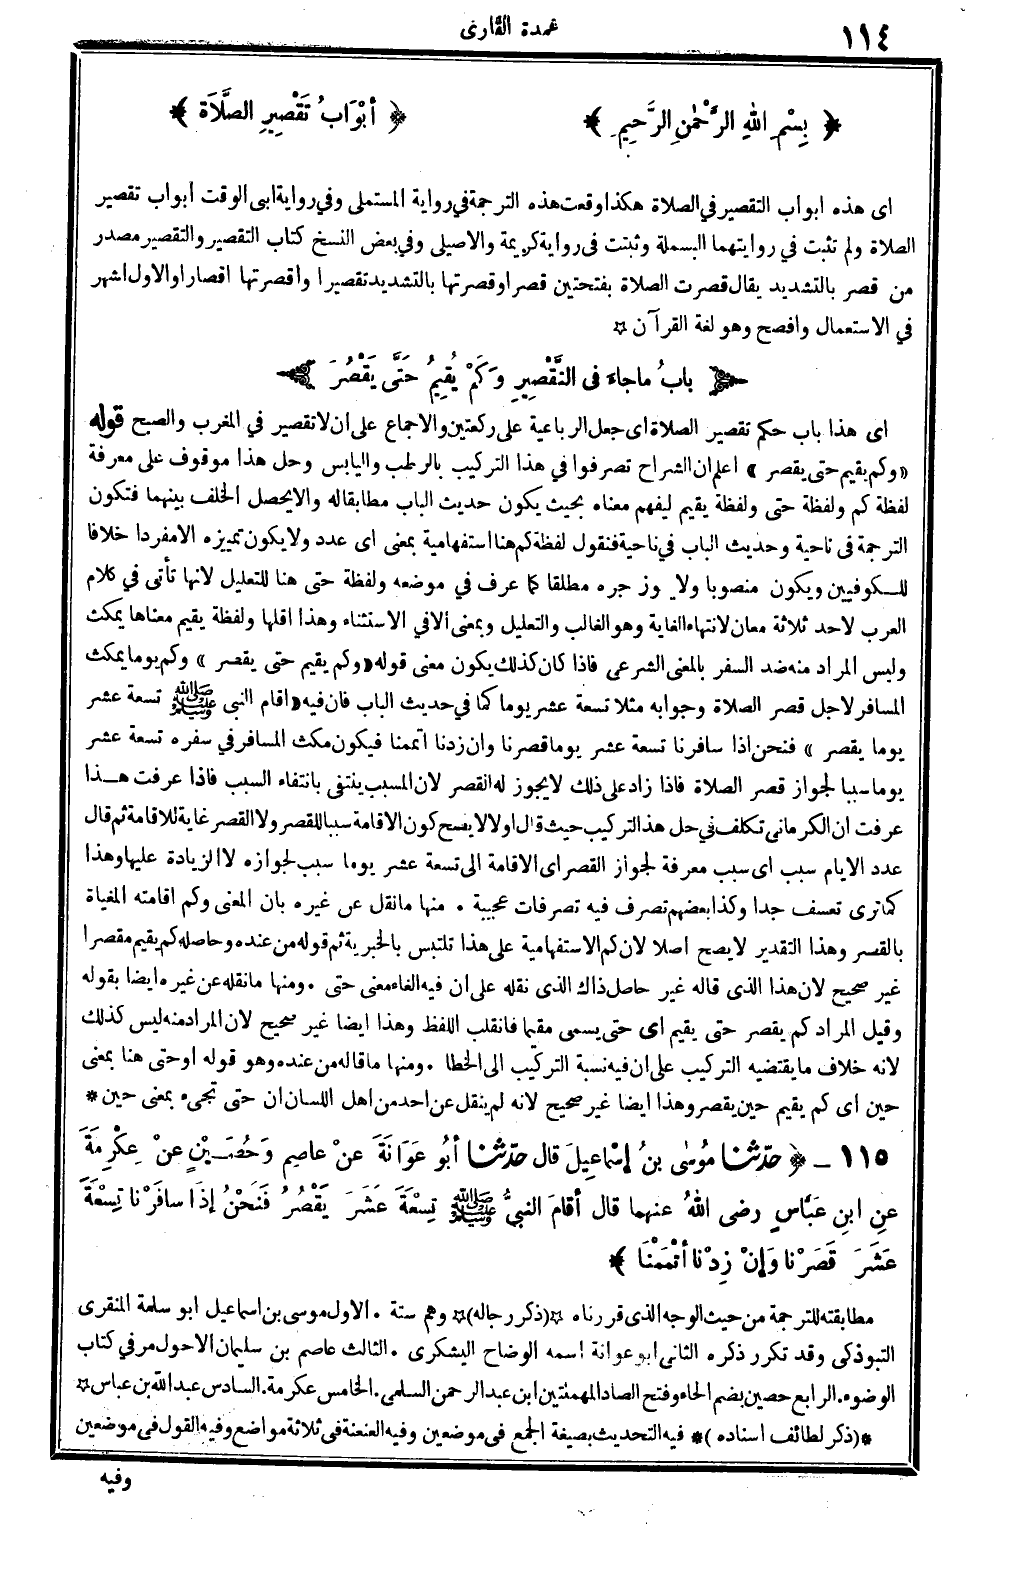 ١١٤
عمدة القارى
﴿ بِسْمِ اللهِ الرَّحْمٰنِ الرَّحِيمِ ﴾ ﴿ أَبْوَابُ تَقْصِيرِ الصَّلَاةِ ﴾
اى هذه ابواب التقصير في الصلاة هكذا وقعت هذه الترجمة في رواية المستملى وفي رواية ابى الوقت ابواب تقصير
الصلاة ولم تثبت في روايتهما البسملة وثبتت فى رواية كريمة والاصيلى وفي بعض النسخ كتاب التقصير والتقصير مصدر
من قصر بالتشديد يقال قصرت الصلاة بفتحتين قصرا وقصرتها بالتشديد تقصيرا واقصرتها اقصارا والاول اشهر
في الاستعمال وافصح وهو لغة القرآن ☆
بابُ ما جاءَ فى التَّقْصِيرِ وَكَمْ يُقِيمُ حَتَّى يَقْصُرَ
اى هذا باب حكم تقصير الصلاة اى جعل الرباعية على ركعتين والاجماع على ان لا تقصير في المغرب والصبح قوله
«وكم يقيم حتى يقصر» اعلم ان الشراح تصرفوا في هذا التركيب بالرطب واليابس وحل هذا موقوف على معرفة
لفظة كم ولفظة حتى ولفظة يقيم ليفهم معناه بحيث يكون حديث الباب مطابقا له والا يحصل الخلف بينهما فتكون
الترجمة فى ناحية وحديث الباب في ناحية فنقول لفظة كم هنا استفهامية بمعنى اى عدد ولا يكون تمييزه الا مفردا خلافا
للـكوفيين ويكون منصوبا ولا يـ وز جره مطلقا كما عرف في موضعه ولفظة حتى هنا للتعليل لانها تأتى في كلام
العرب لاحد ثلاثة معان لانتهاء الغاية وهو الغالب والتعليل وبمعنى الا في الاستثناء وهذا اقلها ولفظة يقيم معناها يمكث
وليس المراد منه ضد السفر بالمعنى الشرعى فاذا كان كذلك يكون معنى قوله «وكم يقيم حتى يقصر» وكم يوما يمكث
المسافر لاجل قصر الصلاة وجوابه مثلا تسعة عشر يوما كما في حديث الباب فان فيه «اقام النبى ﷺ تسعة عشر
يوما يقصر» فنحن اذا سافرنا تسعة عشر يوما قصرنا وان زدنا اتممنا فيكون مكث المسافر في سفره تسعة عشر
يوما سببا لجواز قصر الصلاة فاذا زاد على ذلك لا يجوز له القصر لان المسبب ينتفى بانتفاء السبب فاذا عرفت هـذا
عرفت ان الكرمانى تكلف في حل هذا التركيب حيث قال اولا لا يصح كون الاقامة سببا للقصر ولا القصر غاية للاقامة ثم قال
عدد الايام سبب اى سبب معرفة لجواز القصر اى الاقامة الى تسعة عشر يوما سبب لجوازه لا الزيادة عليها وهذا
كما ترى تعسف جدا وكذا بعضهم تصرف فيه تصرفات عجيبة . منها ما نقل عن غيره بان المعنى وكم اقامته المغياة
بالقصر وهذا التقدير لا يصح اصلا لان كم الاستفهامية على هذا تلتبس بالخبرية ثم قوله من عنده وحاصله كم يقيم مقصرا
غير صحيح لان هذا الذى قاله غير حاصل ذاك الذى نقله على ان فيه الغاء معنى حتى . ومنها ما نقله عن غيره ايضا بقوله
وقيل المراد كم يقصر حتى يقيم اى حتى يسمى مقيما فانقلب اللفظ وهذا ايضا غير صحيح لان المراد منه ليس كذلك
لانه خلاف ما يقتضيه التركيب على ان فيه نسبة التركيب الى الخطا . ومنها ما قاله من عنده وهو قوله او حتى هنا بمعنى
حين اى كم يقيم حين يقصر وهذا ايضا غير صحيح لانه لم ينقل عن احد من اهل اللسان ان حتى تجىء بمعنى حين *
١١٥ ـ ﴿ حدّثنا مُوسٰى بنُ إسْماعِيلَ قال حدّثنا أبُو عَوَانَةَ عنْ عاصِمٍ وَحُصَـيْنٍ عنْ عِكْرِمَةَ
عنِ ابنِ عَبَّاسٍ رضى اللهُ عنهما قال أقامَ النبىُّ ﷺ تِسْعَةَ عَشَرَ يَقْصُرُ فَنَحْنُ إذَا سافَرْنا تِسْعَةَ
عَشَرَ قَصَرْنا وَإنْ زِدْنا أتْمَمْنَا ﴾
مطابقته للترجمة من حيث الوجه الذى قررناه ☆(ذكر رجاله)☆ وهم ستة . الاول موسى بن اسماعيل ابو سلمة المنقرى
التبوذكى وقد تكرر ذكره الثانى ابو عوانة اسمه الوضاح اليشكرى . الثالث عاصم بن سليمان الاحول مر في كتاب
الوضوء . الرابع حصين بضم الحاء وفتح الصاد المهملتين ابن عبد الرحمن السلمى . الخامس عكرمة . السادس عبد الله بن عباس ☆
*(ذكر لطائف اسناده)* فيه التحديث بصيغة الجمع فى موضعين وفيه العنعنة فى ثلاثة مواضع وفيه القول فى موضعين
وفيه